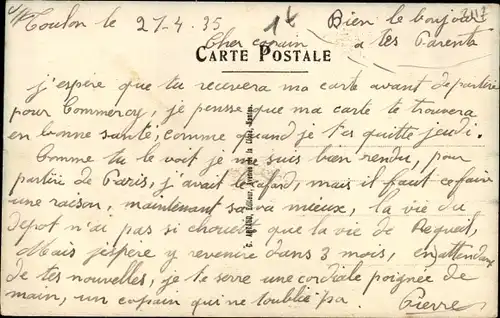 Toulon le 21-4.35
Bien le bonjour
à tes Parents
Cher copain
CARTE POSTALE
j'espère que tu recevera ma carte avant de partire
pour Commercy, je pensse que ma carte te trouvera
en bonne santé, comme quand je t'es quitté jeudi.
Comme tu le voit je me suis bien rendu, pour
partire de Paris, j'avait le cafard, mais il faut ce faire
une raison, maintenant sa va mieux, la vie du
depot n'ai pas si chouette que la vie de
Mais j'espère y revenire dans 3 mois, en attendant
de tes nouvelles, je te serre une cordiale poignée de
main, un copain qui ne t'oublie pa. Pierre